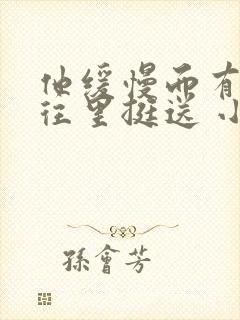 他缓慢而有
往里挺送 小
孫會芳